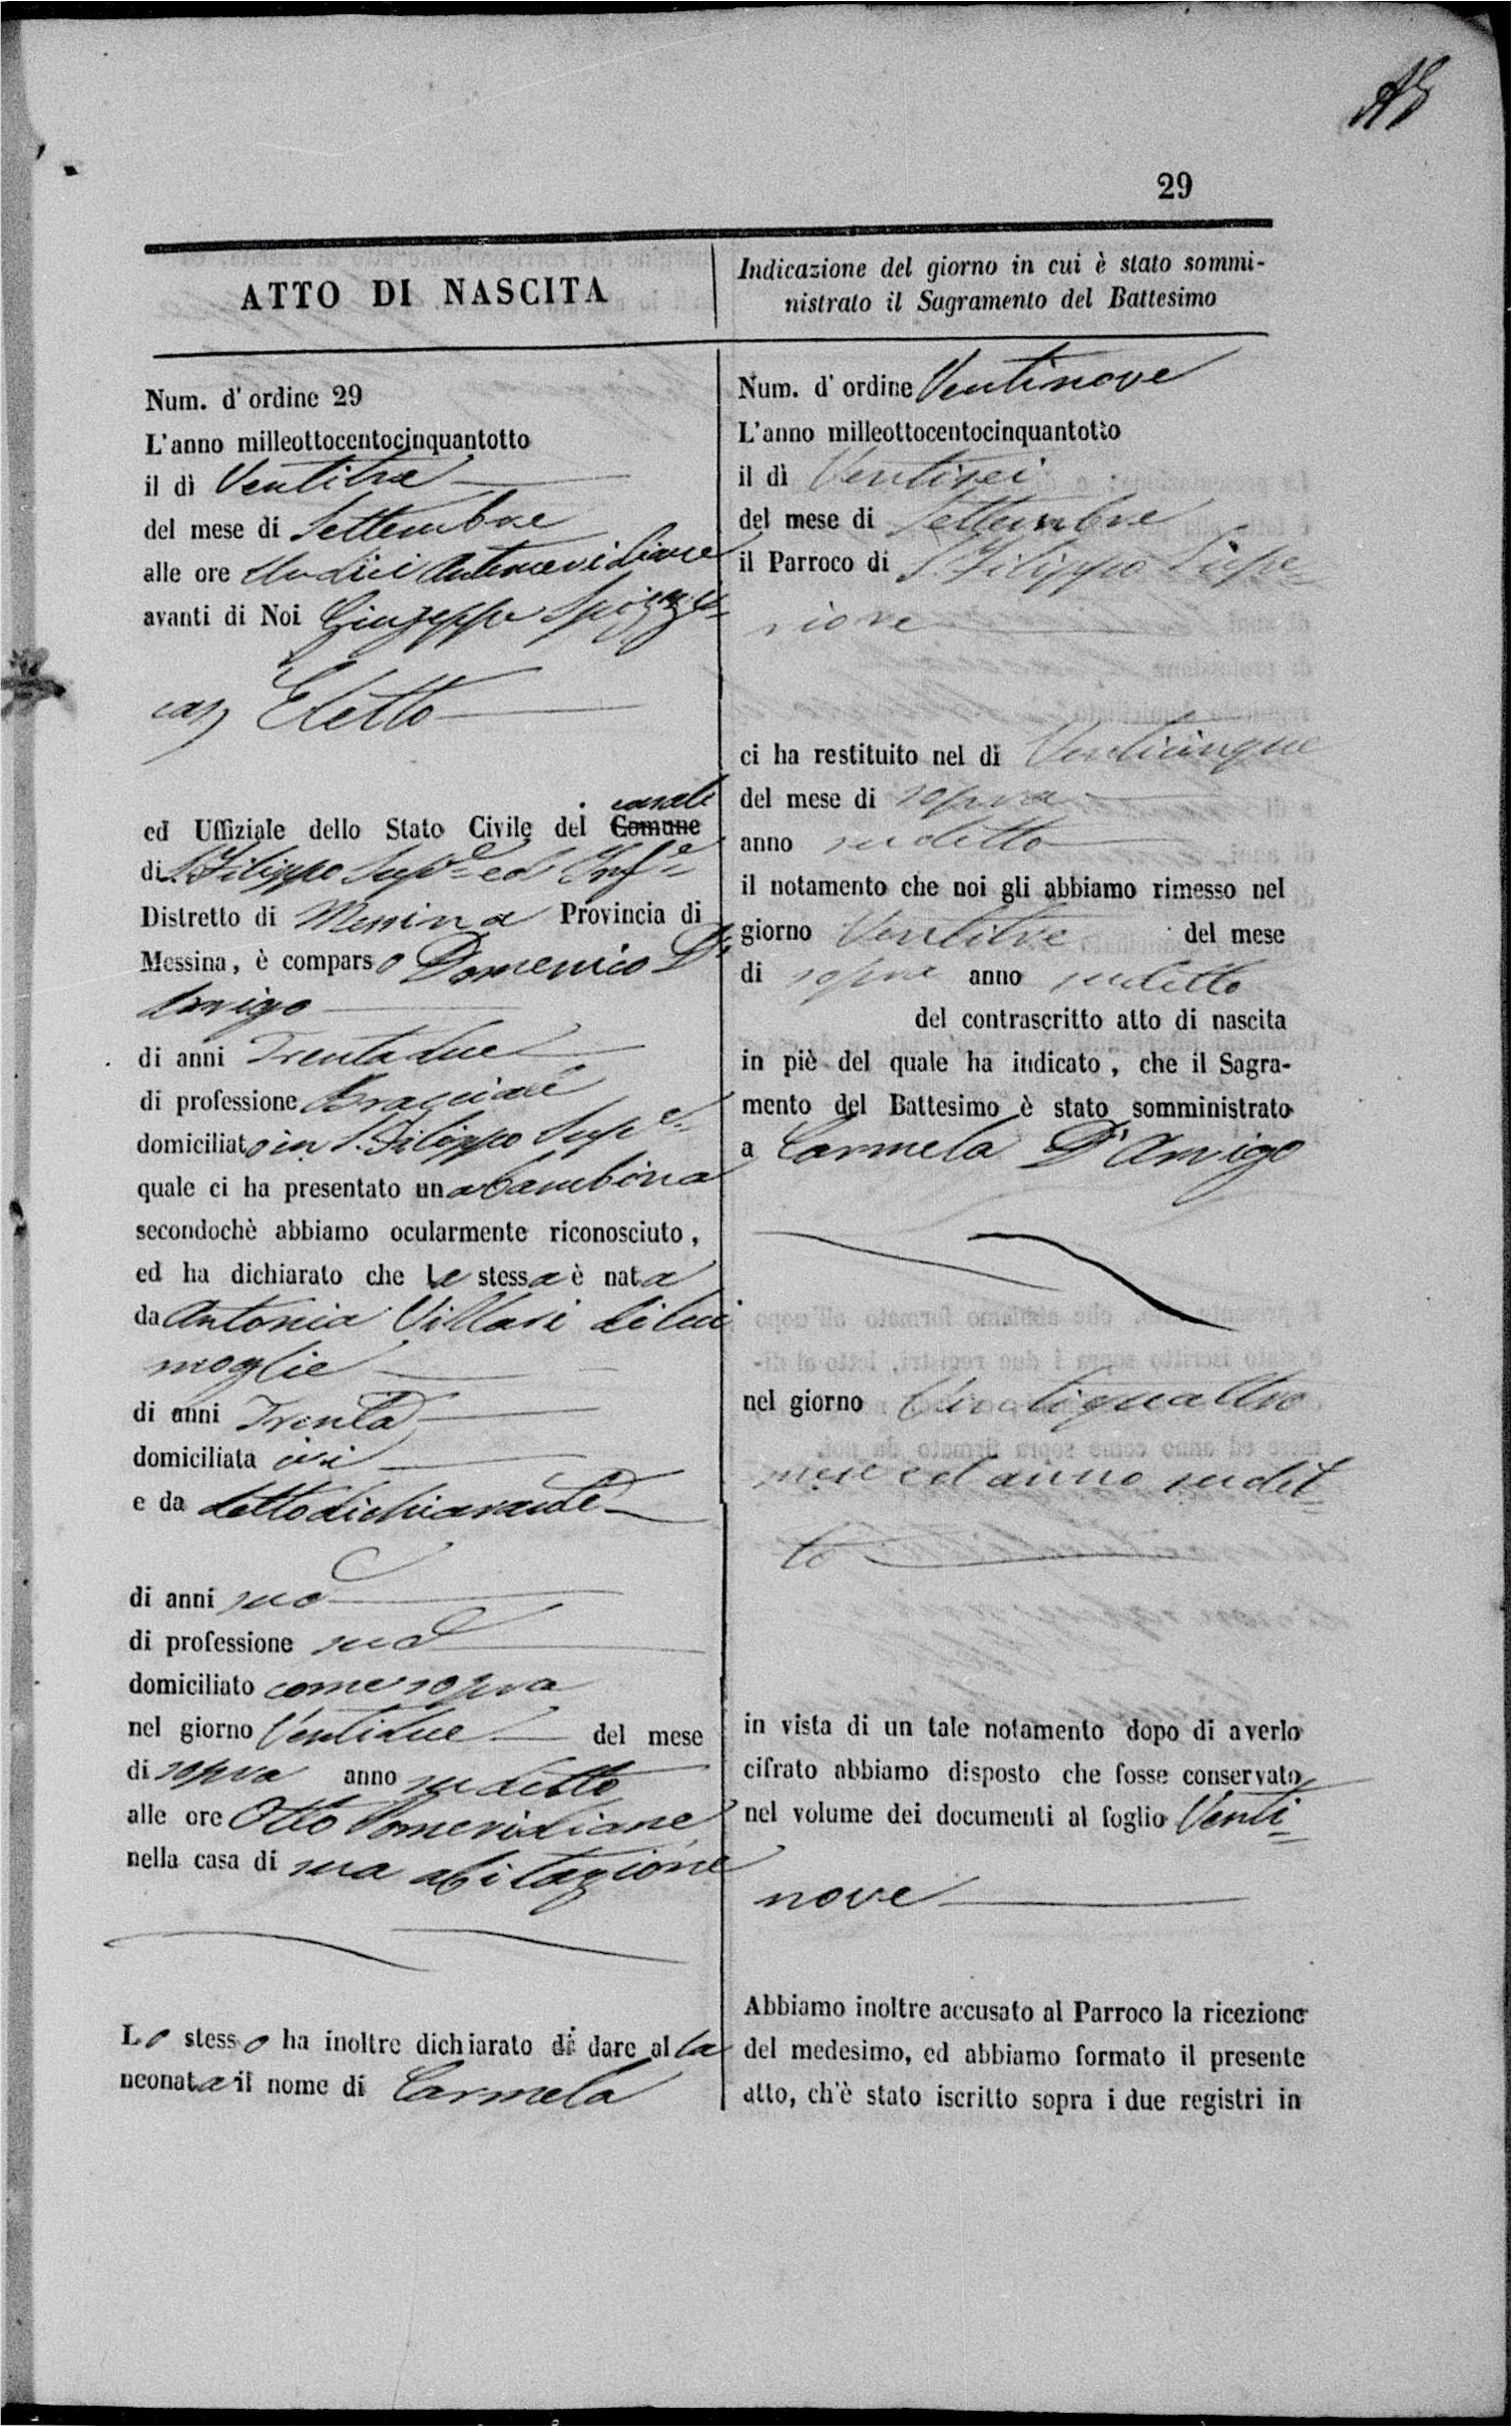 29
ATTO DI NASCITA
Num. d'ordine 29
L'anno milleottocentocinquantotto
il dì Ventitre
del mese di Settembre
alle ore Undici Antimeridiane
avanti di Noi Giuseppe Spizzi=
cas Eletto
casale
ed Uffiziale dello Stato Civile del Comune
di S. Filippo Sup.e ed Inf.e
Distretto di Messina Provincia di
Messina, è comparso Domenico D'
Arrigo
di anni Trentadue
di professione Bracciale
domiciliato in S. Filippo Sup.e
quale ci ha presentato una bambina
secondochè abbiamo ocularmente riconosciuto,
ed ha dichiarato che la stessa è nata
da Antonia Villari di lui
moglie
di anni Trenta
domiciliata ivi
e da detto dichiarante
di anni sud
di professione sud
domiciliato come sopra
nel giorno Ventidue del mese
di sopra anno sudetto
alle ore Otto Pomeridiane
nella casa di sua abitazione
Lo stesso ha inoltre dichiarato di dare alla
neonata il nome di Carmela
Indicazione del giorno in cui è stato sommi-
nistrato il Sagramento del Battesimo
Num. d'ordine Ventinove
L'anno milleottocentocinquantotto
il dì Ventisei
del mese di Settembre
il Parroco di S. Filippo Supe=
riore
ci ha restituito nel dì Venticinque
del mese di sopra
anno sudetto
il notamento che noi gli abbiamo rimesso nel
giorno Ventitre del mese
di sopra anno sudetto
del contrascritto atto di nascita
in piè del quale ha indicato, che il Sagra-
mento del Battesimo è stato somministrato
a Carmela D'Arrigo
nel giorno Ventiquattro
mese ed anno sudet=
to
in vista di un tale notamento dopo di averlo
cifrato abbiamo disposto che fosse conservato
nel volume dei documenti al foglio Venti=
nove
Abbiamo inoltre accusato al Parroco la ricezione
del medesimo, ed abbiamo formato il presente
atto, ch'è stato iscritto sopra i due registri in